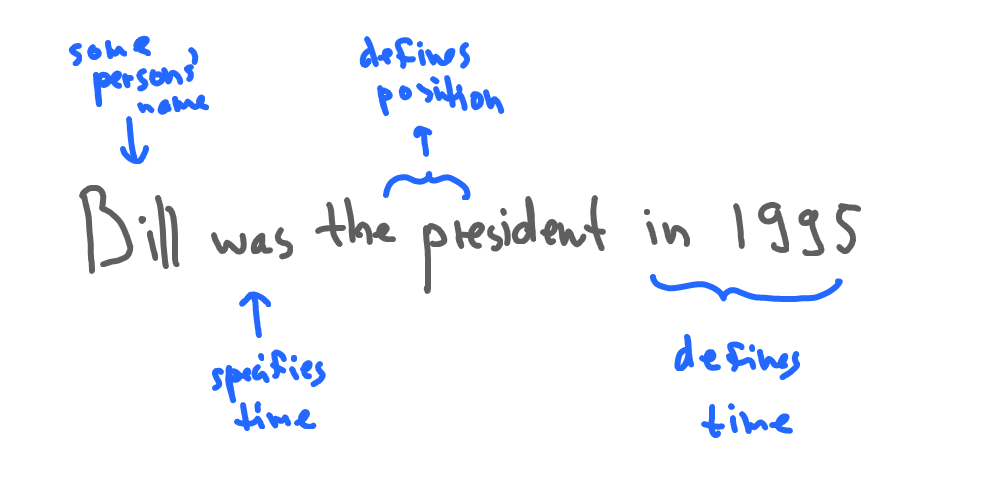 some
persons'
name
defines
position
Bill was the president in 1995
specifies
time
defines
time